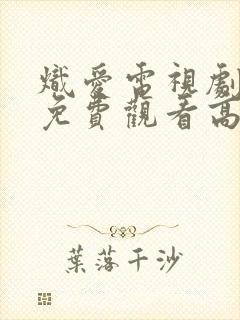 熾愛電視劇
免費觀看高
葉落千沙